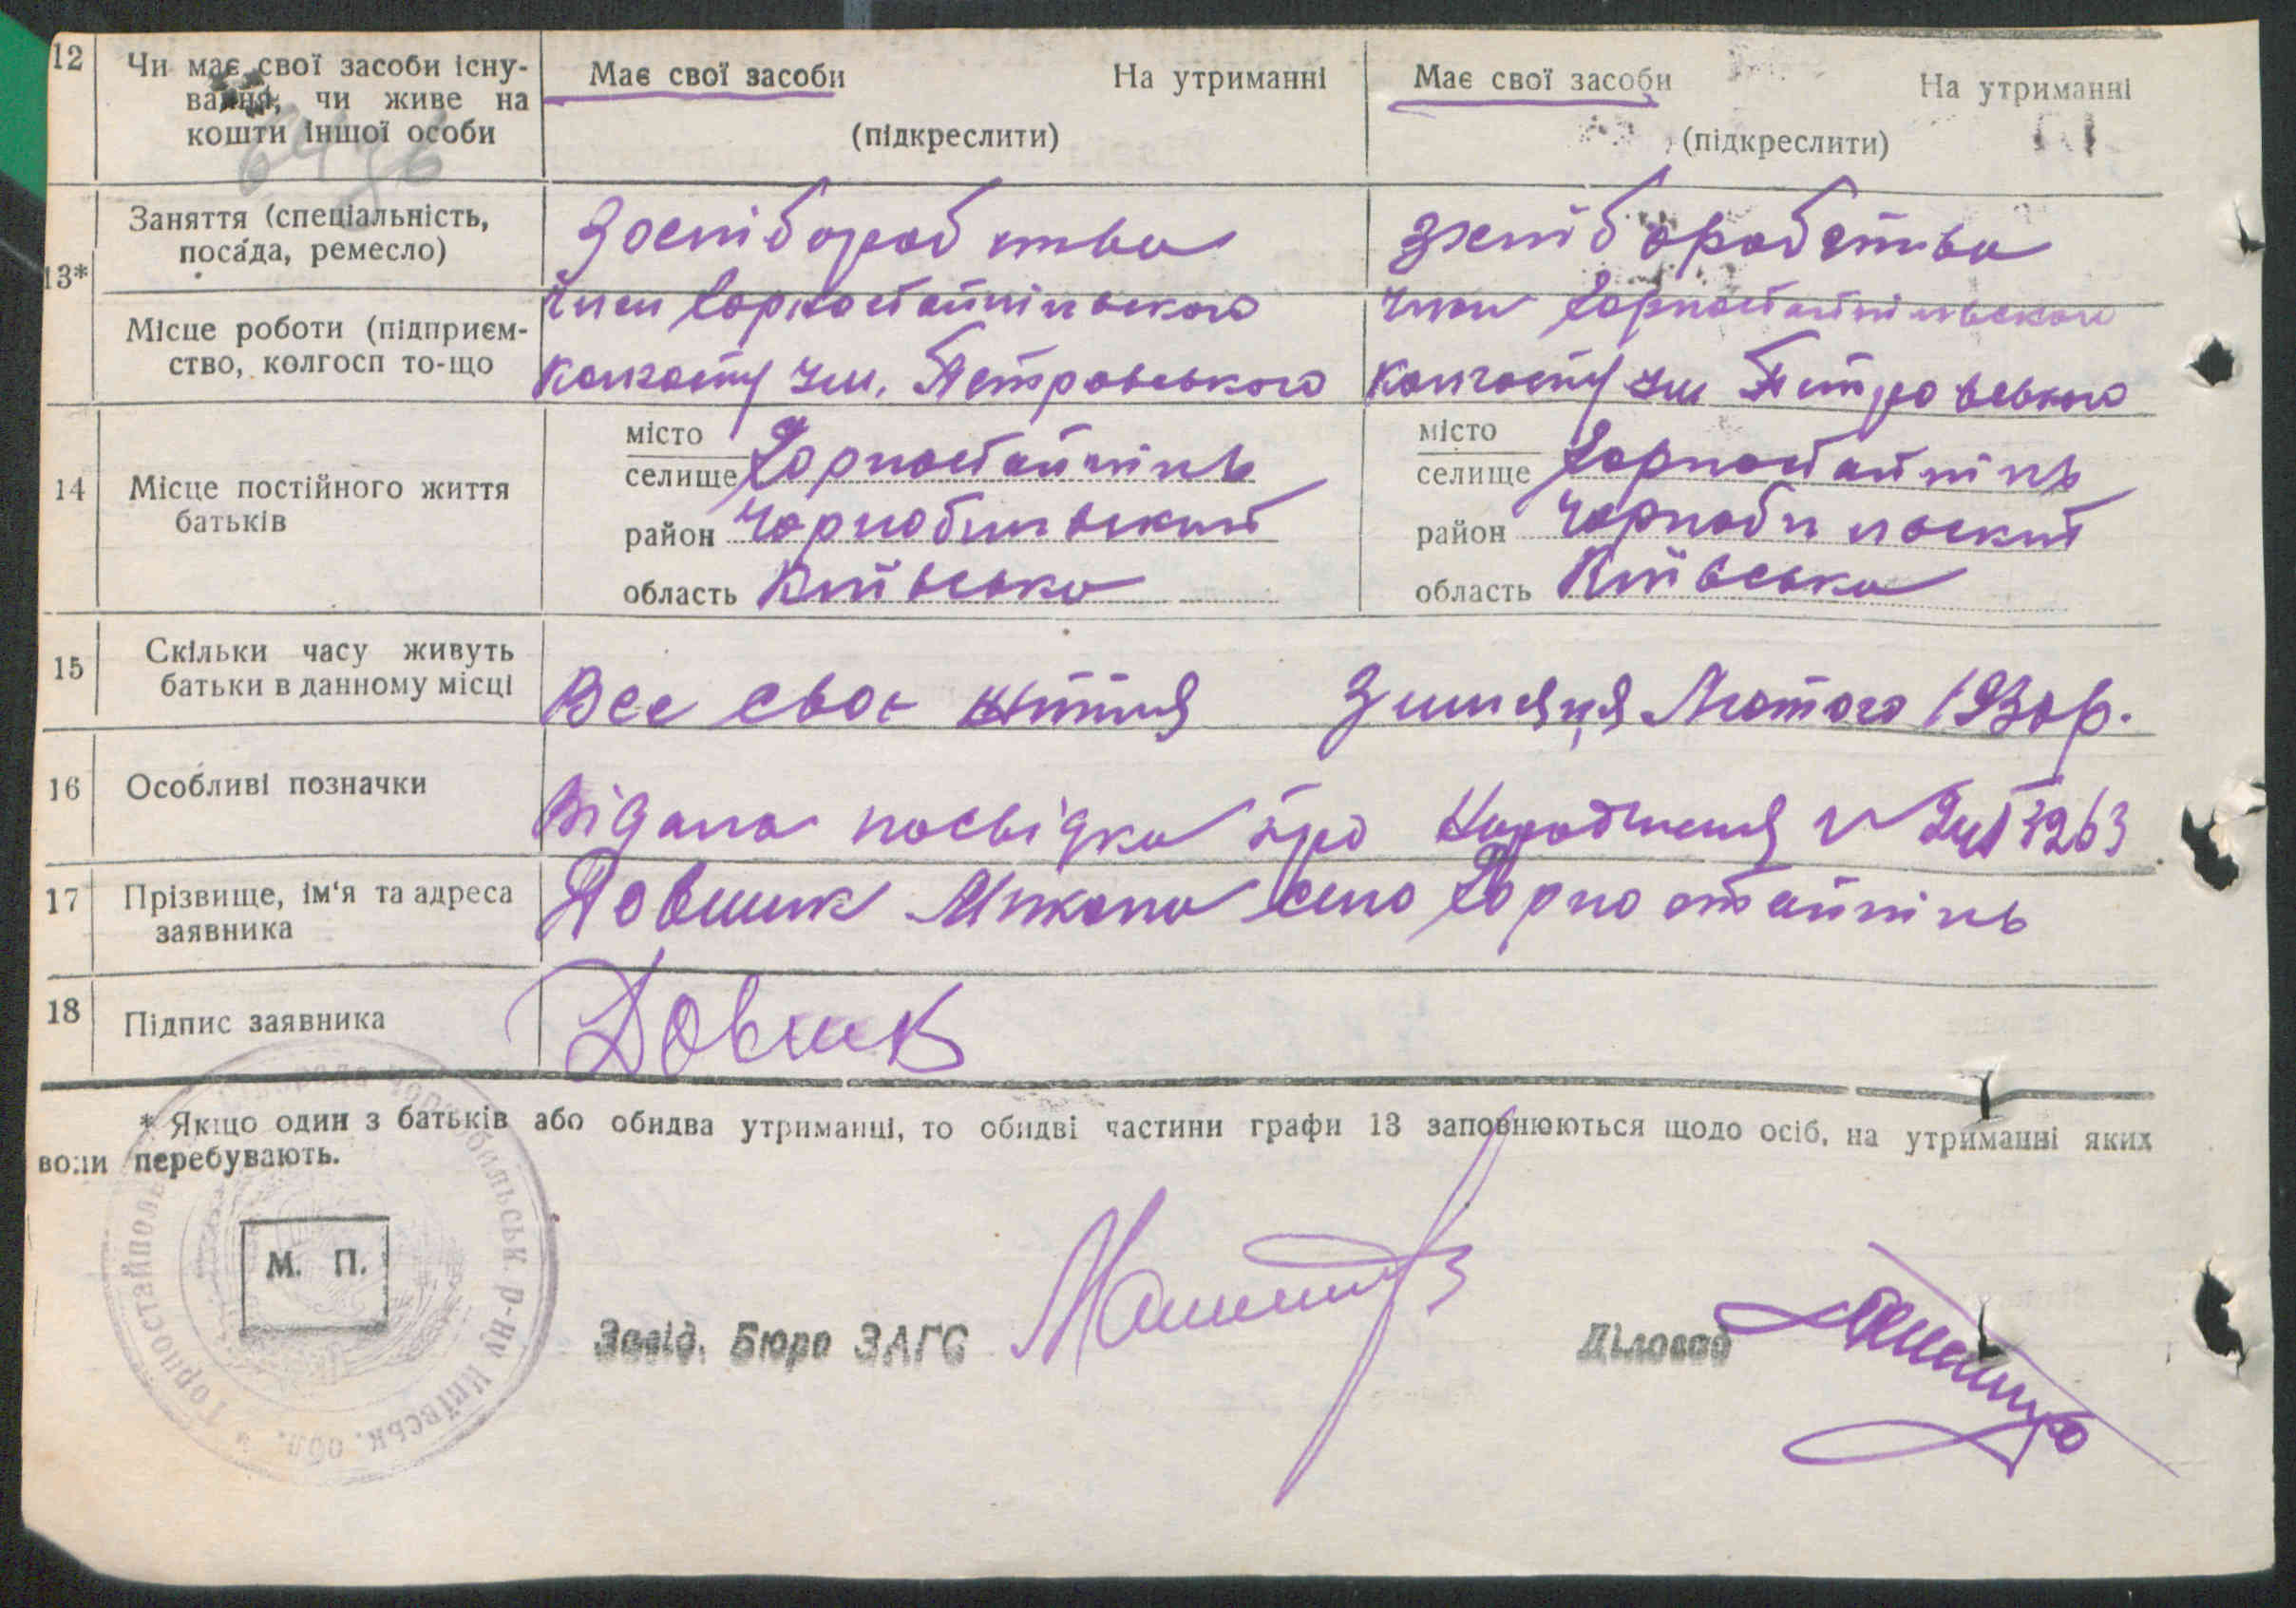 12 Чи має свої засоби існу- Має свої засоби На утриманні Має свої засоби На утриманні
вання, чи живе на
кошти іншої особи (підкреслити) (підкреслити)
Заняття (спеціальність,
посада, ремесло)
13*
член Горностайпільского член Горностайпільского
Місце роботи (підприєм-
ство, колгосп то-що колгоспу Ім. Петровського колгоспу Ім Петровського
14 Місце постійного життя
батьків
місто місто
селище Горностайпіль селище Горностайпіль
район Чорнобильский район Чорнобильский
область Київська область Київська
15 Скільки часу живуть
батьки в данному місці Все своє життя З місяця Лютого 1930р.
16 Особливі позначки Видана посвідка про Народження 3263
17 Прізвище, ім'я та адреса
заявника Довшик Микола село Горностайпіль
18 Підпис заявника Довшик
* Якщо один з батьків або обидва утриманці, то обидві частини графи 13 заповнюються щодо осіб, на утриманні яких
вони перебувають.
М. П.
Горностайпольс рада Чорнобильськ. р-ну Київськ. обл.
Завід. Бюро ЗАГС Діловод